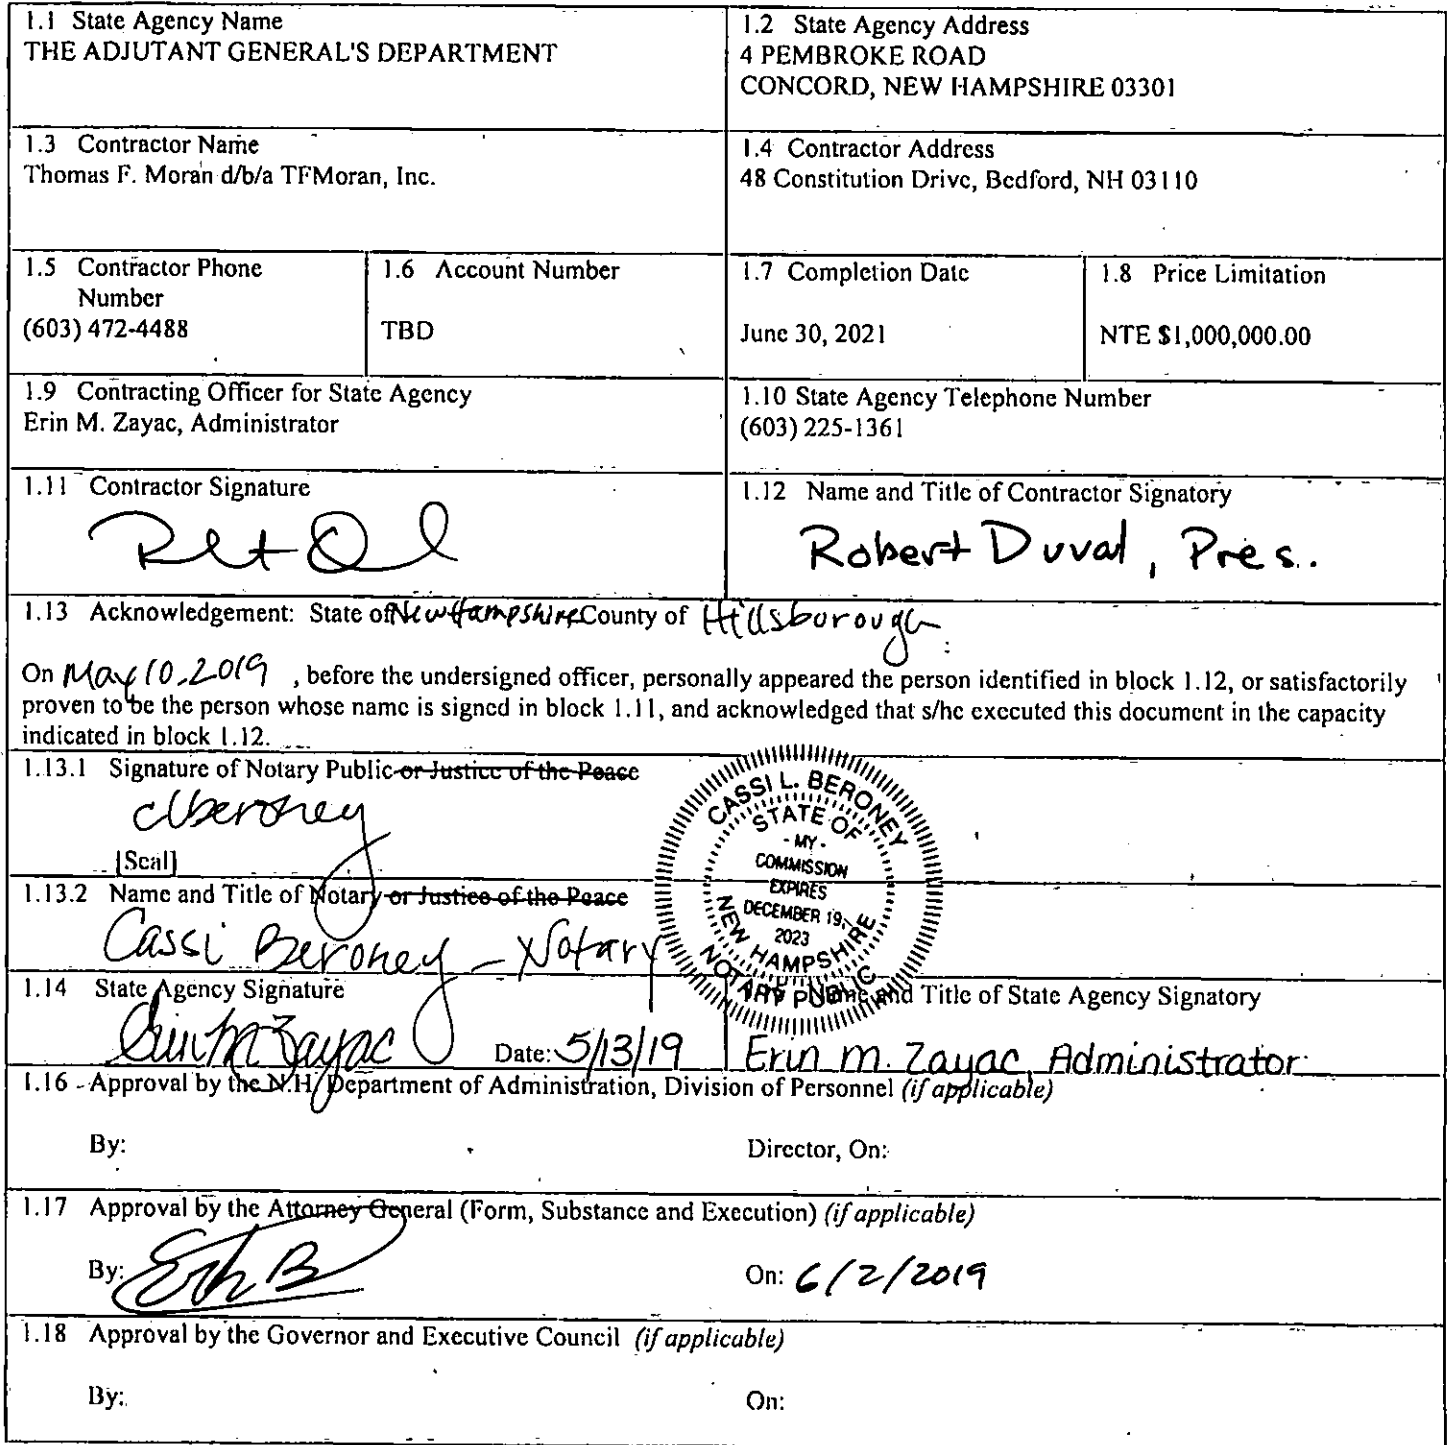 1.1 State Agency Name
THE ADJUTANT GENERAL'S DEPARTMENT
1.2 State Agency Address
4 PEMBROKE ROAD
CONCORD, NEW HAMPSHIRE 03301
1.3 Contractor Name
Thomas F. Moran d/b/a TFMoran, Inc.
1.4 Contractor Address
48 Constitution Drive, Bedford, NH 03110
1.5 Contractor Phone
Number
(603) 472-4488
1.6 Account Number
TBD
1.7 Completion Date
June 30, 2021
1.8 Price Limitation
NTE $1,000,000.00
1.9 Contracting Officer for State Agency
Erin M. Zayac, Administrator
1.10 State Agency Telephone Number
(603) 225-1361
1.11 Contractor Signature
1.12 Name and Title of Contractor Signatory
Robert Duval, Pres.
1.13 Acknowledgement: State of New Hampshire County of Hillsborough
On May 10, 2019 , before the undersigned officer, personally appeared the person identified in block 1.12, or satisfactorily
proven to be the person whose name is signed in block 1.11, and acknowledged that s/he executed this document in the capacity
indicated in block 1.12.
1.13.1 Signature of Notary Public or Justice of the Peace
clberoney
[Seal]
1.13.2 Name and Title of Notary or Justice of the Peace
Cassi Beroney - Notary
CASSI L. BERONEY
STATE OF
- MY -
COMMISSION
EXPIRES
DECEMBER 19,
2023
NEW HAMPSHIRE
NOTARY PUBLIC
1.14 State Agency Signature
Erin M Zayac Date: 5/13/19
and Title of State Agency Signatory
Erin M. Zayac, Administrator
1.16 Approval by the N.H. Department of Administration, Division of Personnel (if applicable)
By:
Director, On:
1.17 Approval by the Attorney General (Form, Substance and Execution) (if applicable)
By:
On: 6/2/2019
1.18 Approval by the Governor and Executive Council (if applicable)
By:
On: